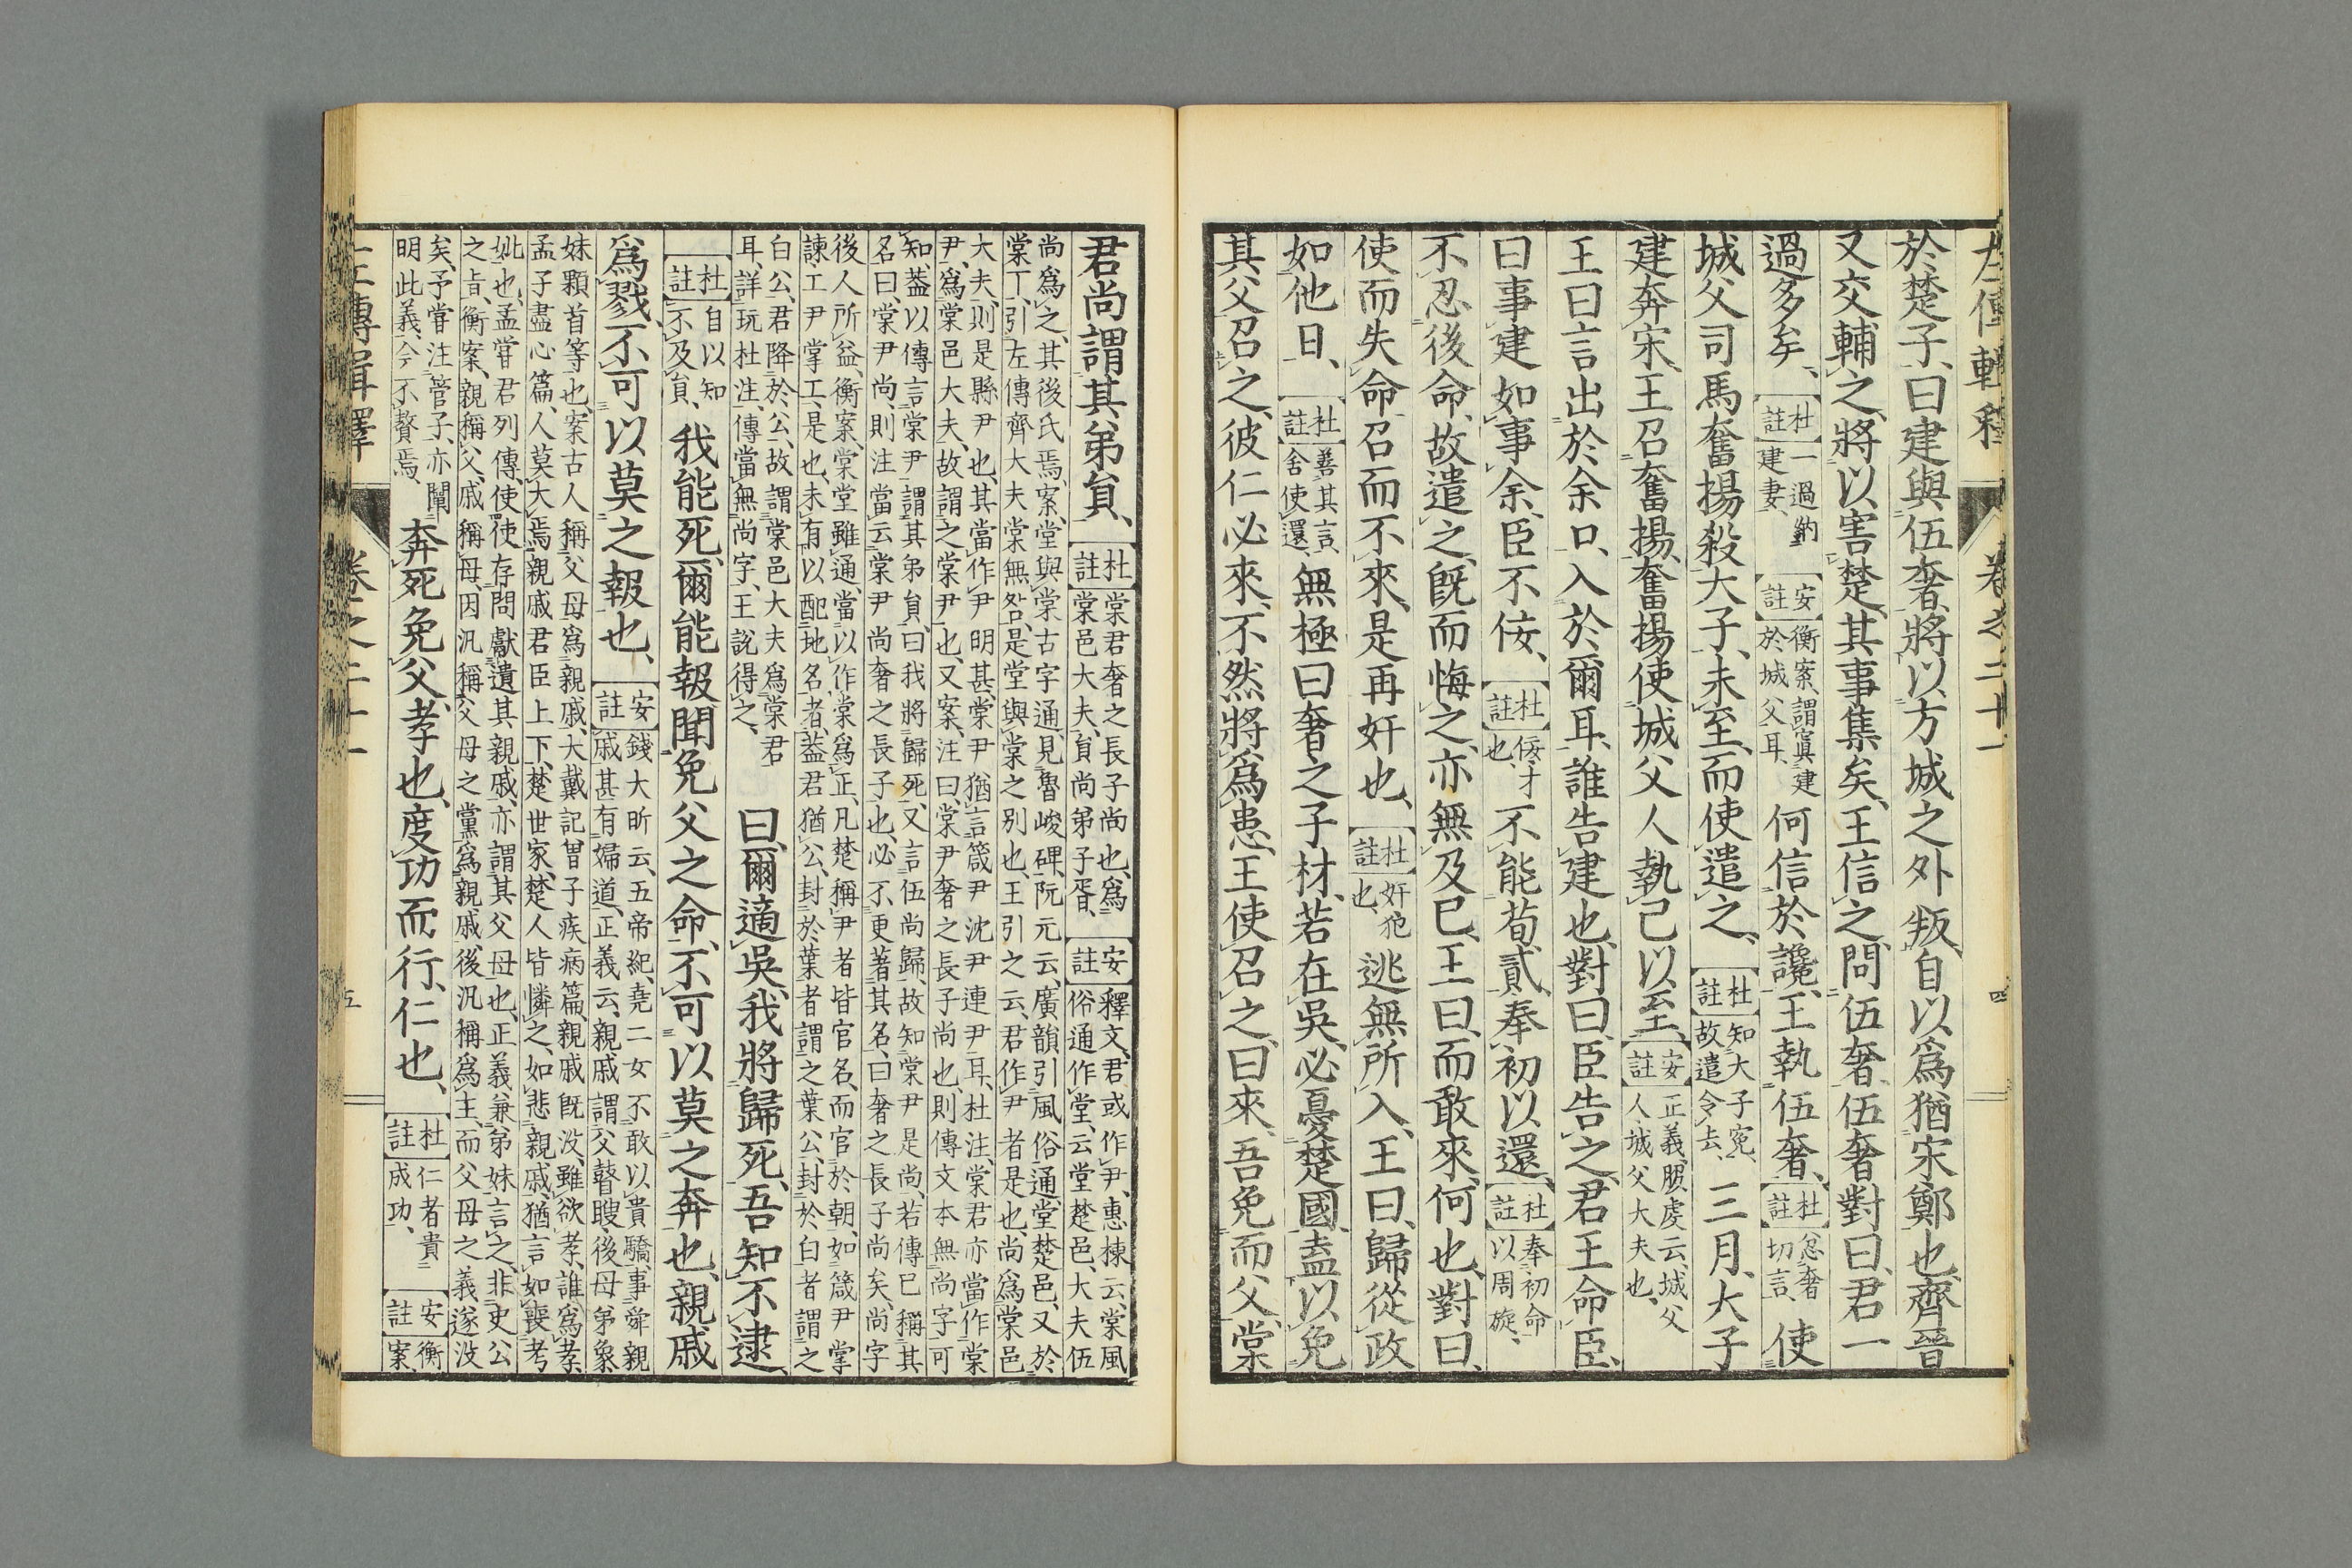 左傳輯釋 卷之二十一 四
於楚子、曰建與伍奢、將以方城之外叛、自以爲猶宋鄭也、齊晉
又交輔之、將以害楚、其事集矣、王信之、問伍奢、伍奢對曰、君一
過多矣、杜註一過納建妻、安註衡案、謂寘建於城父耳、何信於讒、王執伍奢、杜註忿奢切言、使
城父司馬奮揚殺大子、未至、而使遣之、杜註知大子寃、故遣令去、三月、大子
建奔宋、王召奮揚、奮揚使城父人執己以至、安註正義、服虔云、城父人、城父大夫也、
王曰、言出於余口、入於爾耳、誰告建也、對曰、臣告之、君王命臣、
曰事建如事余、臣不佞、杜註佞才也、不能苟貳、奉初以還、杜註奉初命以周旋、
不忍後命、故遣之、既而悔之、亦無及已、王曰、而敢來、何也、對曰、
使而失命、召而不來、是再奸也、杜註奸犯也、逃無所入、王曰、歸從政
如他日、杜註善其言、舍使還、無極曰奢之子材、若在吳、必憂楚國、盍以免
其父召之、彼仁必來、不然將爲患、王使召之、曰來、吾免而父、棠
君尚謂其弟員、杜註棠君奢之長子尚也、爲棠邑大夫、員尚弟子胥、安註釋文、君或作尹、惠棟云、棠風俗通作堂、云堂楚邑、大夫伍
尚爲之、其後氏焉、案、堂與棠古字通、見魯峻碑、阮元云、廣韻引風俗通、堂楚邑、又於
棠丁、引左傳齊大夫棠無咎、是堂與棠之別也、王引之云、君作尹者是也、尚爲棠邑
大夫、則是縣尹也、其當作尹明甚、棠尹猶言箴尹沈尹連尹耳、杜注、棠君亦當作棠
尹、爲棠邑大夫、故謂之棠尹也、又案、注曰、棠尹奢之長子尚也、則傳文本無尚字可
知、蓋以傳言棠尹謂其弟員、曰我將歸死、又言伍尚歸、故知棠尹是尚、若傳已稱其
名曰、棠尹尚、則注當云棠尹尚奢之長子也、必不更著其名、曰奢之長子尚矣、尚字
後人所益、衡案、棠堂雖通、當以作棠爲正、凡楚稱尹者皆官名、而官於朝、如箴尹掌
諫、工尹掌工、是也、未有以配地名者、蓋君猶公、封於葉者謂之葉公、封於白者謂之
白公、君降於公、故謂棠邑大夫爲棠君
耳、詳玩杜注、傳當無尚字、王說得之、曰、爾適吳、我將歸死、吾知不逮、
杜註自以知不及員、我能死、爾能報、聞免父之命、不可以莫之奔也、親戚
爲戮、不可以莫之報也、安註錢大昕云、五帝紀、堯二女不敢以貴驕、事舜親戚甚有婦道、正義云、親戚謂父瞽瞍後母弟象
妹顆首等也、案古人稱父母爲親戚、大戴記曾子疾病篇、親戚既沒、雖欲孝、誰爲孝、
孟子盡心篇、人莫大焉亡親戚君臣上下、楚世家、楚人皆憐之、如悲親戚、猶言如喪考
妣也、孟嘗君列傳、使使存問獻遺其親戚、亦謂其父母也、正義兼弟妹言之、非史公
之旨、衡案、親稱父、戚稱母、因汎稱父母之黨爲親戚、後汎稱爲主、而父母之義、遂沒
矣、予嘗注管子、亦闡
明此義、今不贅焉、奔死免父、孝也、度功而行、仁也、杜註仁者貴成功、安註衡案、
左傳輯釋 卷之二十一 五